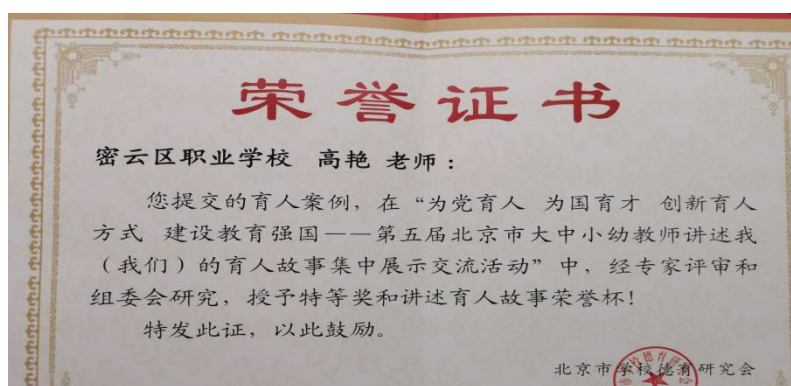 荣誉证书
密云区职业学校 高艳 老师：
您提交的育人案例，在“为党育人 为国育才 创新育人
方式 建设教育强国——第五届北京市大中小幼教师讲述我
（我们）的育人故事集中展示交流活动”中，经专家评审和
组委会研究，授予特等奖和讲述育人故事荣誉杯！
特发此证，以此鼓励。
北京市学校德育研究会